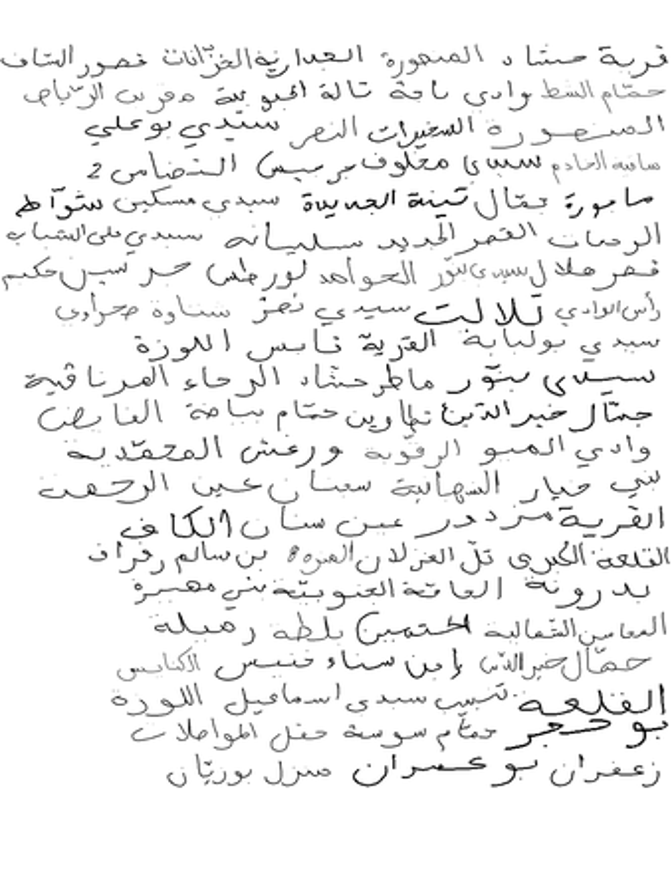 قرية حشاد المنصورة الجدارية الخزانات قصور الساف
حمّام الشط وادي باجة تالة الجنوبية مفرين الرياض
المنصورة الصغيرات النصر سيدي بوعلي
سانية الخادم سيدي مخلوف برجيس التضامن 2
سامورة جمّال تينة الجديدة سيدي مسكين شوّاط
الرحبات القصر الجديد سليمانة سيدي علي الشباب
قصر هلال سيدي بنّور الحوامد قرطس حكيم
رأس الوادي تلالت سيدي نصر شناوة صحراوي
سيدي بولبابة القرية قابس اللوزة
سيدي بنّور ماطر حشّاد الرجاء المرناقية
جمّال خير الدين تطاوين حمّام بياضة الغابض
وادي الرقوبة ورغش المحمّدية
بني خيار الشهابية سمنان عين الرحمة
القرية مزدور عين سنان الكاف
القلعة الكبرى تلّ الغزلان بن سالم رفراف
بدرونة العامّة الجنوبيّة بني مهيرة
المحاسن الشمالية بلطة رميلة
حمّال خير الدين سناء قنيس الكنايس
القلعة سيدي اسماعيل اللوزة
بو حجر حمّام سوسة حقل المواصلات
زعفران بو عمران منزل بوزيّان